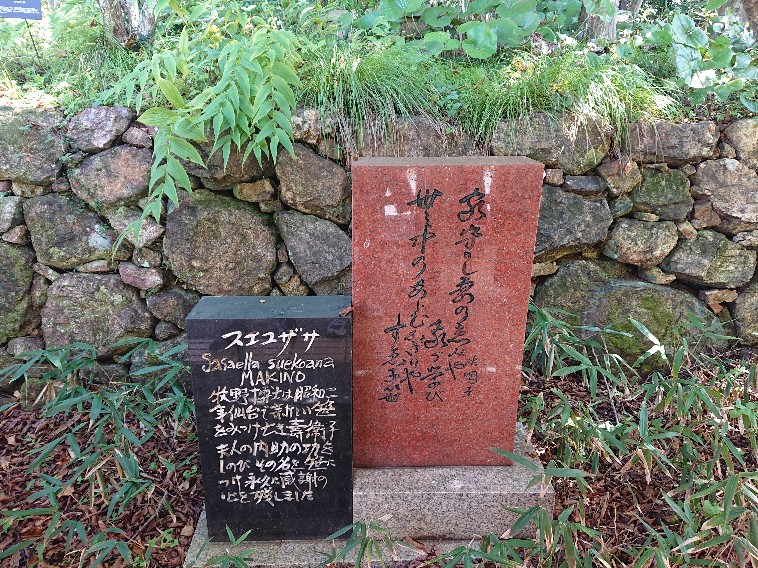 家守りし妻の恵や
我が学び
世の中のあらむかぎりや
すゑ子笹
スエコザサ
Sasaella suekoana
MAKINO
牧野博士は昭和二
年仙台で新しい笹
をみつけ亡き壽衛子
夫人の内助の功を
しのび その名を笹に
つけ永久に感謝の
心を残しました